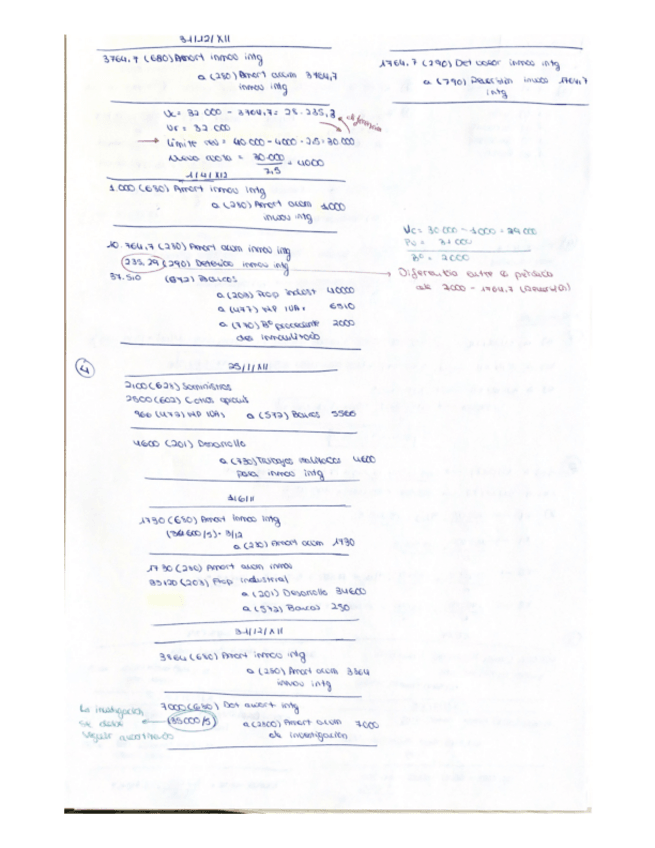 31/12/X11
3764,7 (680) Amort inmov intg
a (280) Amort acum 3764,7
inmov intg
1764,7 (290) Det valor inmov intg
a (790) Reversión inmov 1764,7
intg
Vc = 32 000 - 3764,7 = 28.235,3
Vr = 32 000
diferencia
→ Límite rev = 40 000 - 4000 · 2,5 = 30 000
Nueva cuota = 30.000 / 7,5 = 4000
1/4/X12
1.000 (680) Amort inmov intg
a (280) Amort acum 1000
inmov intg
10.764,7 (280) Amort acum inmov intg
235,29 (290) Deterioro inmov intg
37.510 (572) Bancos
a (203) Prop indust 40000
a (477) HP IVAr 6510
a (770) Bº procedente 2000
del inmovilizado
Vc = 30 000 - 1000 = 29 000
Pv = 31 000
Bº = 2000
4
25/1/X11
2100 (628) Suministros
2500 (602) C otros aprovis
966 (472) HP IVAs a (572) Bancos
4600 (201) Desarrollo
a (730) Trabajos realizados 4600
para inmov intg
1/6/11
1730 (680) Amort inmov intg
(34600/5) · 3/12
a (280) Amort acum 1730
1730 (280) Amort acum inmov
33120 (203) Prop industrial
a (201) Desarrollo 34600
a (572) Bancos 250
31/12/X11
3864 (680) Amort inmov intg
a (280) Amort acum 3864
inmov intg
7000 (680) Dot amort intg
(35000/5)
a (2800) Amort acum 7000
de investigación
La investigación
se debe
seguir amortizando